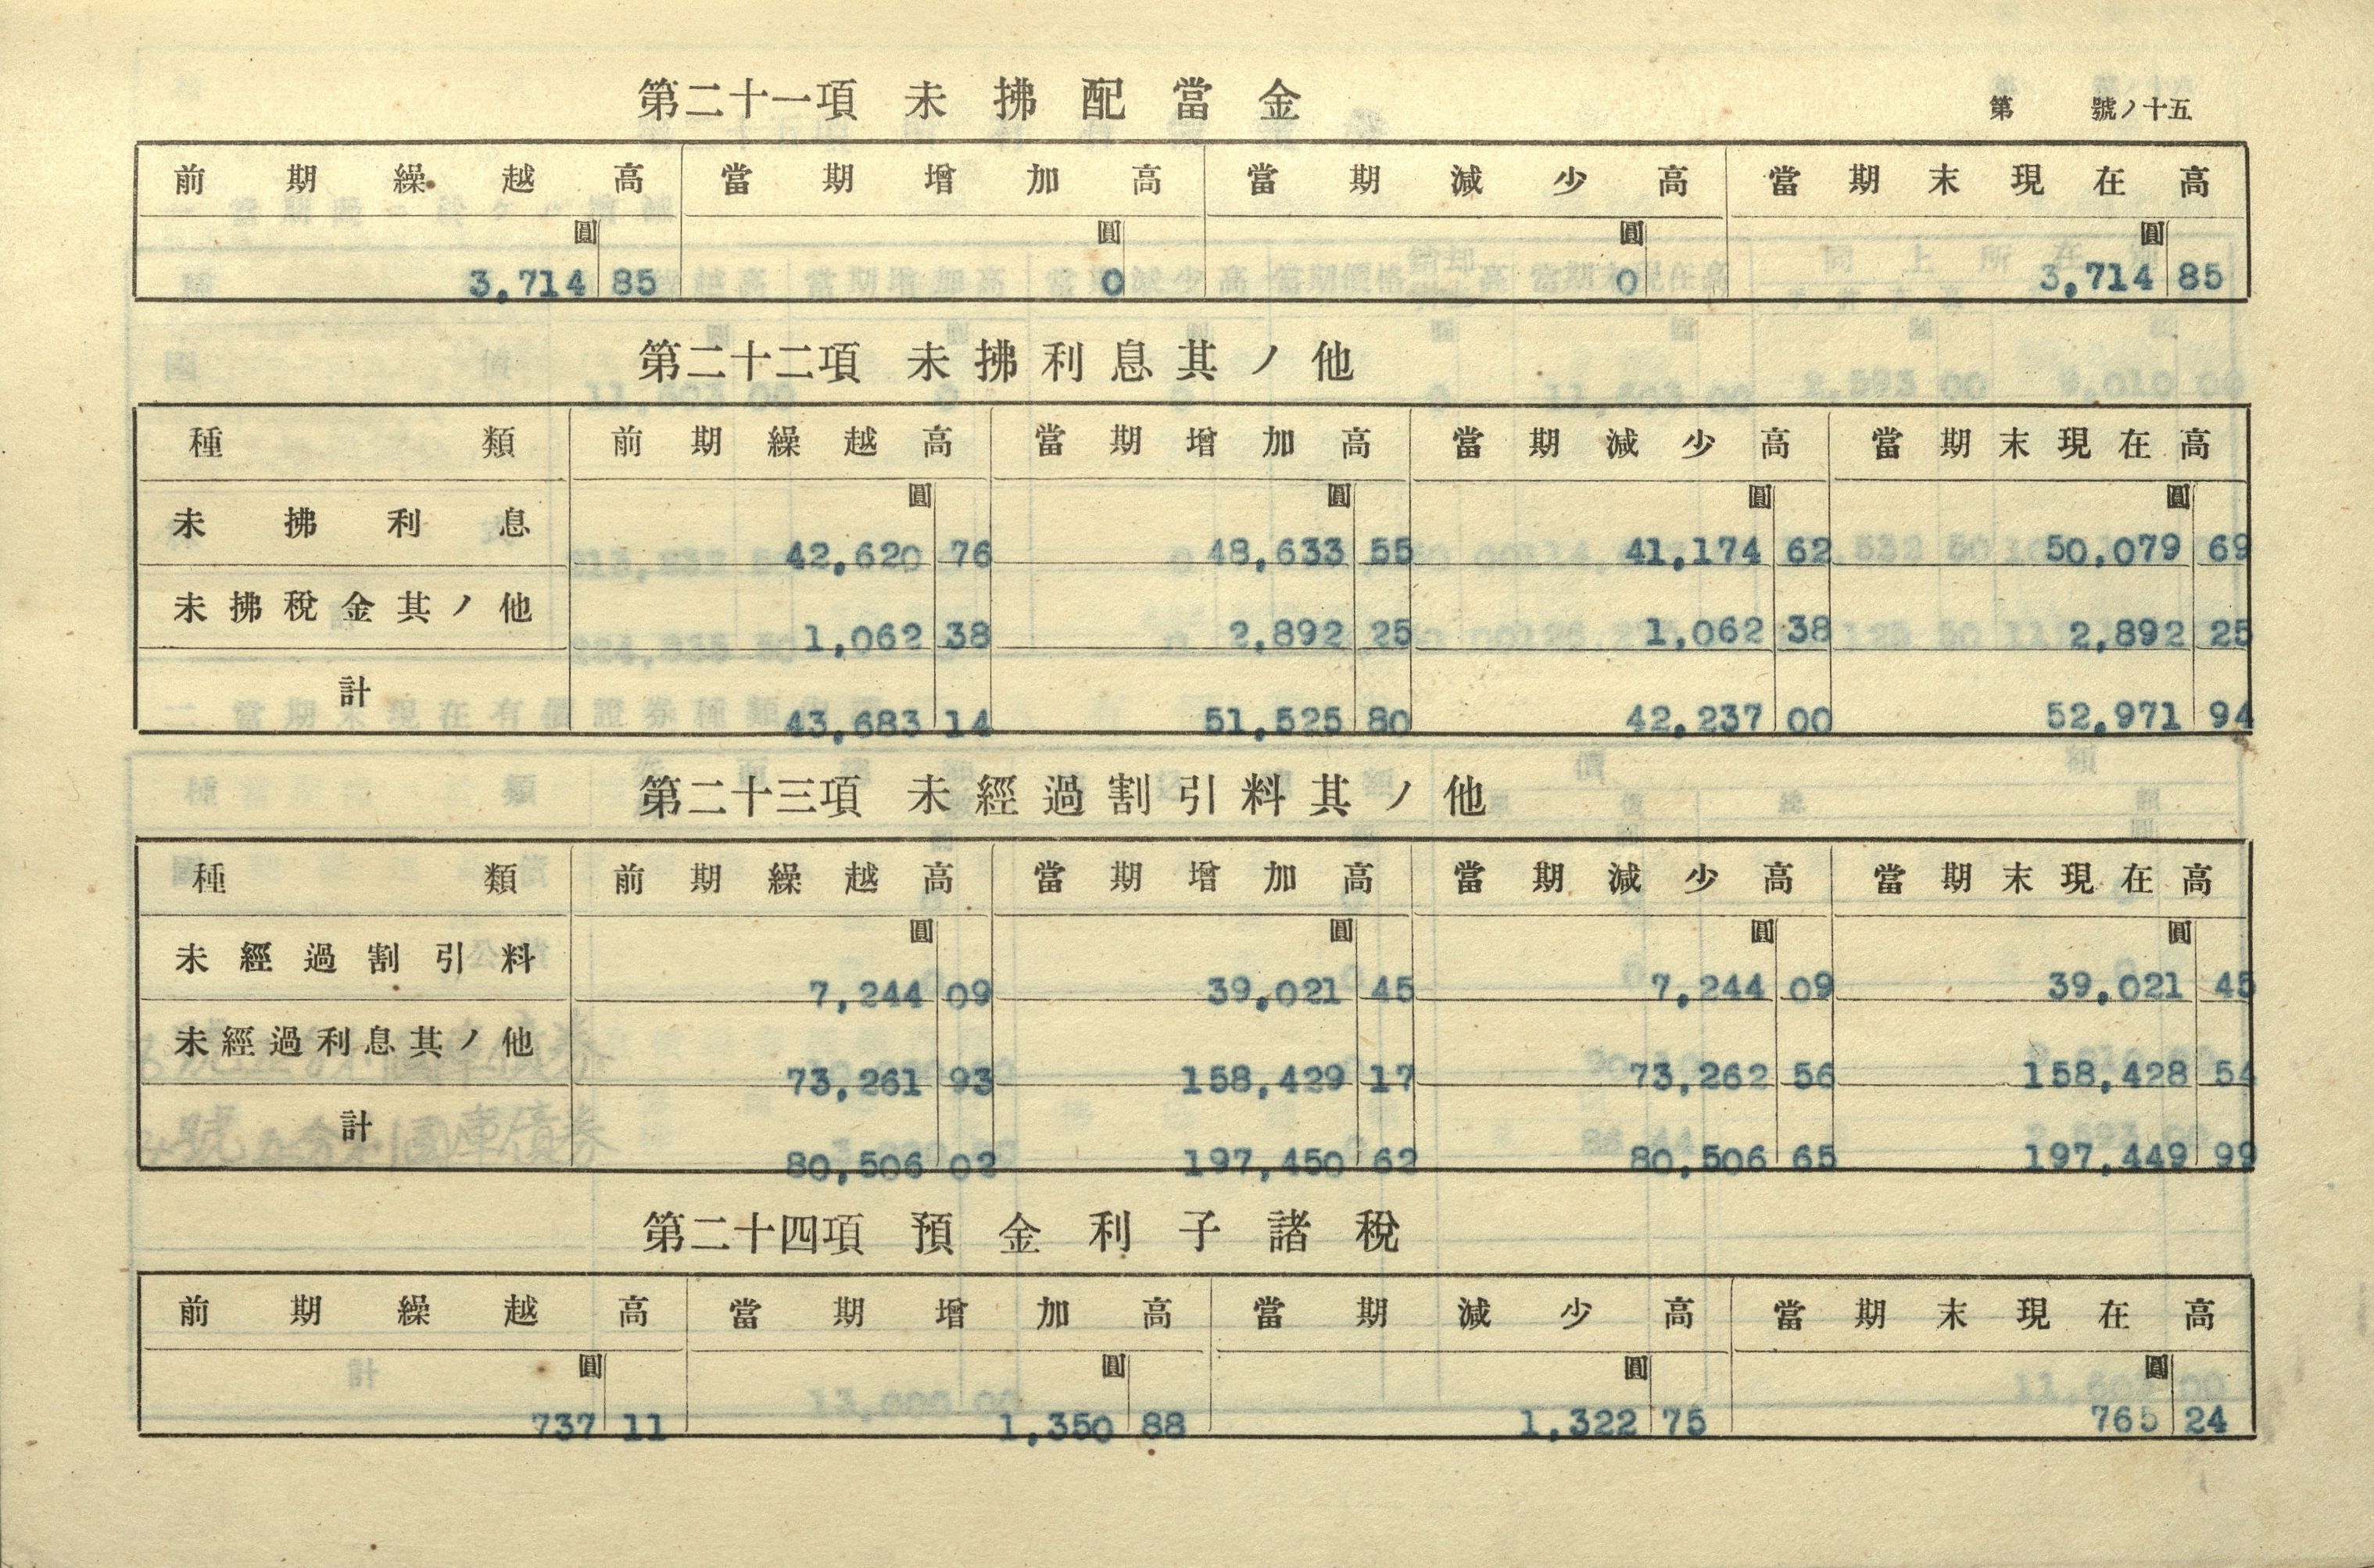 第二十一項 未拂配當金 第 號ノ十五
前期繰越高 當期增加高 當期減少高 當期末現在高
圓 圓 圓 圓
3,714 85 0 0 3,714 85
第二十二項 未拂利息其ノ他
種類 前期繰越高 當期增加高 當期減少高 當期末現在高
圓 圓 圓 圓
未拂利息 42,620 76 48,633 55 41,174 62 50,079 69
未拂稅金其ノ他 1,062 38 2,892 25 1,062 38 2,892 25
計 43,683 14 51,525 80 42,237 00 52,971 94
第二十三項 未經過割引料其ノ他
種類 前期繰越高 當期增加高 當期減少高 當期末現在高
圓 圓 圓 圓
未經過割引料 7,244 09 39,021 45 7,244 09 39,021 45
未經過利息其ノ他 73,261 93 158,429 17 73,262 56 158,428 54
計 80,506 02 197,450 62 80,506 65 197,449 99
第二十四項 預金利子諸稅
前期繰越高 當期增加高 當期減少高 當期末現在高
圓 圓 圓 圓
737 11 1,350 88 1,322 75 765 24